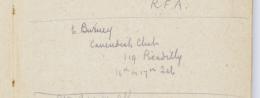 R.F.A.
to Burney
Cavendish Club
119 Piccadilly
16th to 17th Feb